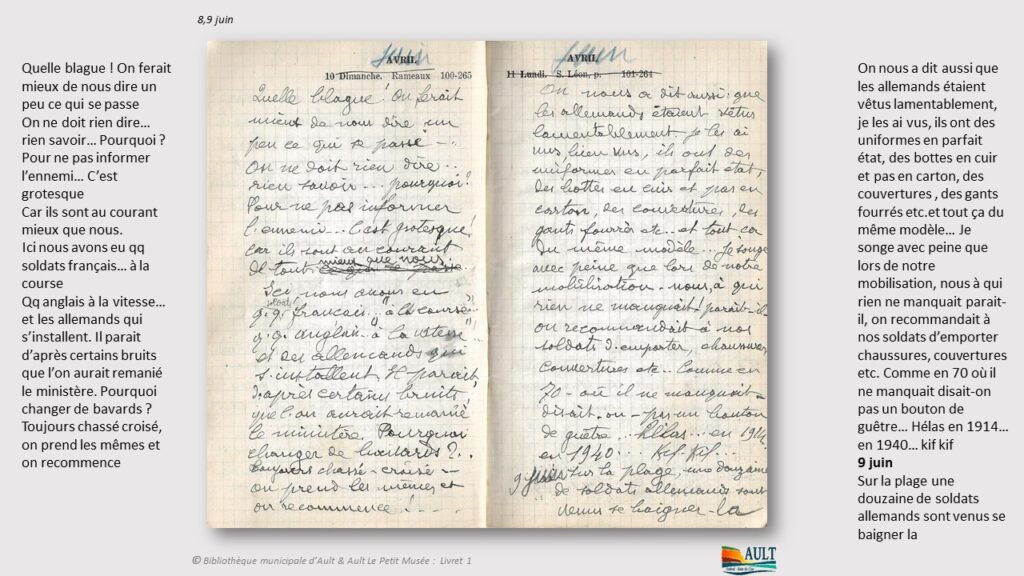 8,9 juin
Quelle blague ! On ferait
mieux de nous dire un
peu ce qui se passe
On ne doit rien dire…
rien savoir… Pourquoi ?
Pour ne pas informer
l’ennemi… C’est
grotesque
Car ils sont au courant
mieux que nous.
Ici nous avons eu qq
soldats français… à la
course
Qq anglais à la vitesse…
et les allemands qui
s’installent. Il parait
d’après certains bruits
que l’on aurait remanié
le ministère. Pourquoi
changer de bavards ?
Toujours chassé croisé,
on prend les mêmes et
on recommence
juin
AVRIL
10 Dimanche. Rameaux 100-265
Quelle blague ! On ferait
mieux de nous dire un
peu ce qui se passe -.
On ne doit rien dire..
rien savoir... pourquoi?
Pour ne pas informer
l'ennemi... C'est grotesque!
Car ils sont au courant
mieux que nous.
de tout ce qui se passe
Ici nous avons eu
soldats
q.q. français... "à la course"
q.q. anglais "à la vitesse"
et des allemands qui
s'installent. Il parait,
d'après certains bruits,
que l'on aurait remanié
le ministère. Pourquoi
changer de bavards ?..
Toujours chassé-croisé-
on prend les mêmes et
on recommence !...
juin
AVRIL
11 Lundi. S. Léon, p. 101-264
On nous a dit aussi que
les allemands étaient vêtus
lamentablement je les ai
vus, bien vus, ils ont des
uniformes en parfait état,
des bottes en cuir et pas en
carton, des couvertures, des
gants fourrés etc.. et tout ca
du même modèle... Je songe
avec peine que lors de notre
mobilisation - nous, à qui
rien ne manquait - parait-il -
on recommandait à nos
soldats d'emporter, chaussures,
couvertures etc.. Comme en
70 - où il ne manquait -
disait-on - pas un bouton
de guêtre... Hélas... en 1914
en 1940... Kif Kif...
9 juin Sur la plage, une douzaine
de soldats allemands sont
venus se baigner - la
On nous a dit aussi que
les allemands étaient
vêtus lamentablement,
je les ai vus, ils ont des
uniformes en parfait
état, des bottes en cuir
et pas en carton, des
couvertures , des gants
fourrés etc.et tout ça du
même modèle… Je
songe avec peine que
lors de notre
mobilisation, nous à qui
rien ne manquait parait-
il, on recommandait à
nos soldats d’emporter
chaussures, couvertures
etc. Comme en 70 où il
ne manquait disait-on
pas un bouton de
guêtre… Hélas en 1914…
en 1940… kif kif
9 juin
Sur la plage une
douzaine de soldats
allemands sont venus se
baigner la
© Bibliothèque municipale d’Ault & Ault Le Petit Musée : Livret 1
AULT